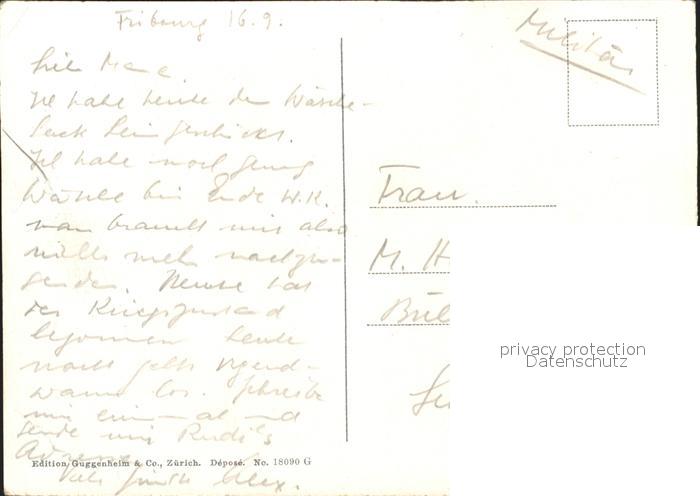 Fribourg 16.9.
Militär
Ich habe heute den Wäsche-
sack heimgeschickt.
Ich habe noch genug
Wäsche bis Ende W.K.
man braucht mir also
nichts mehr nachzu-
senden. Heute hat
der Kriegszustand
begonnen heute
nacht geht's irgend-
wann los. Schreibe
mir einmal und
sende mir Rudi's
Adresse
Alex.
Frau.
M. H
Bül
privacy protection
Datenschutz
Edition Guggenheim & Co., Zürich. Déposé. No. 18090 G